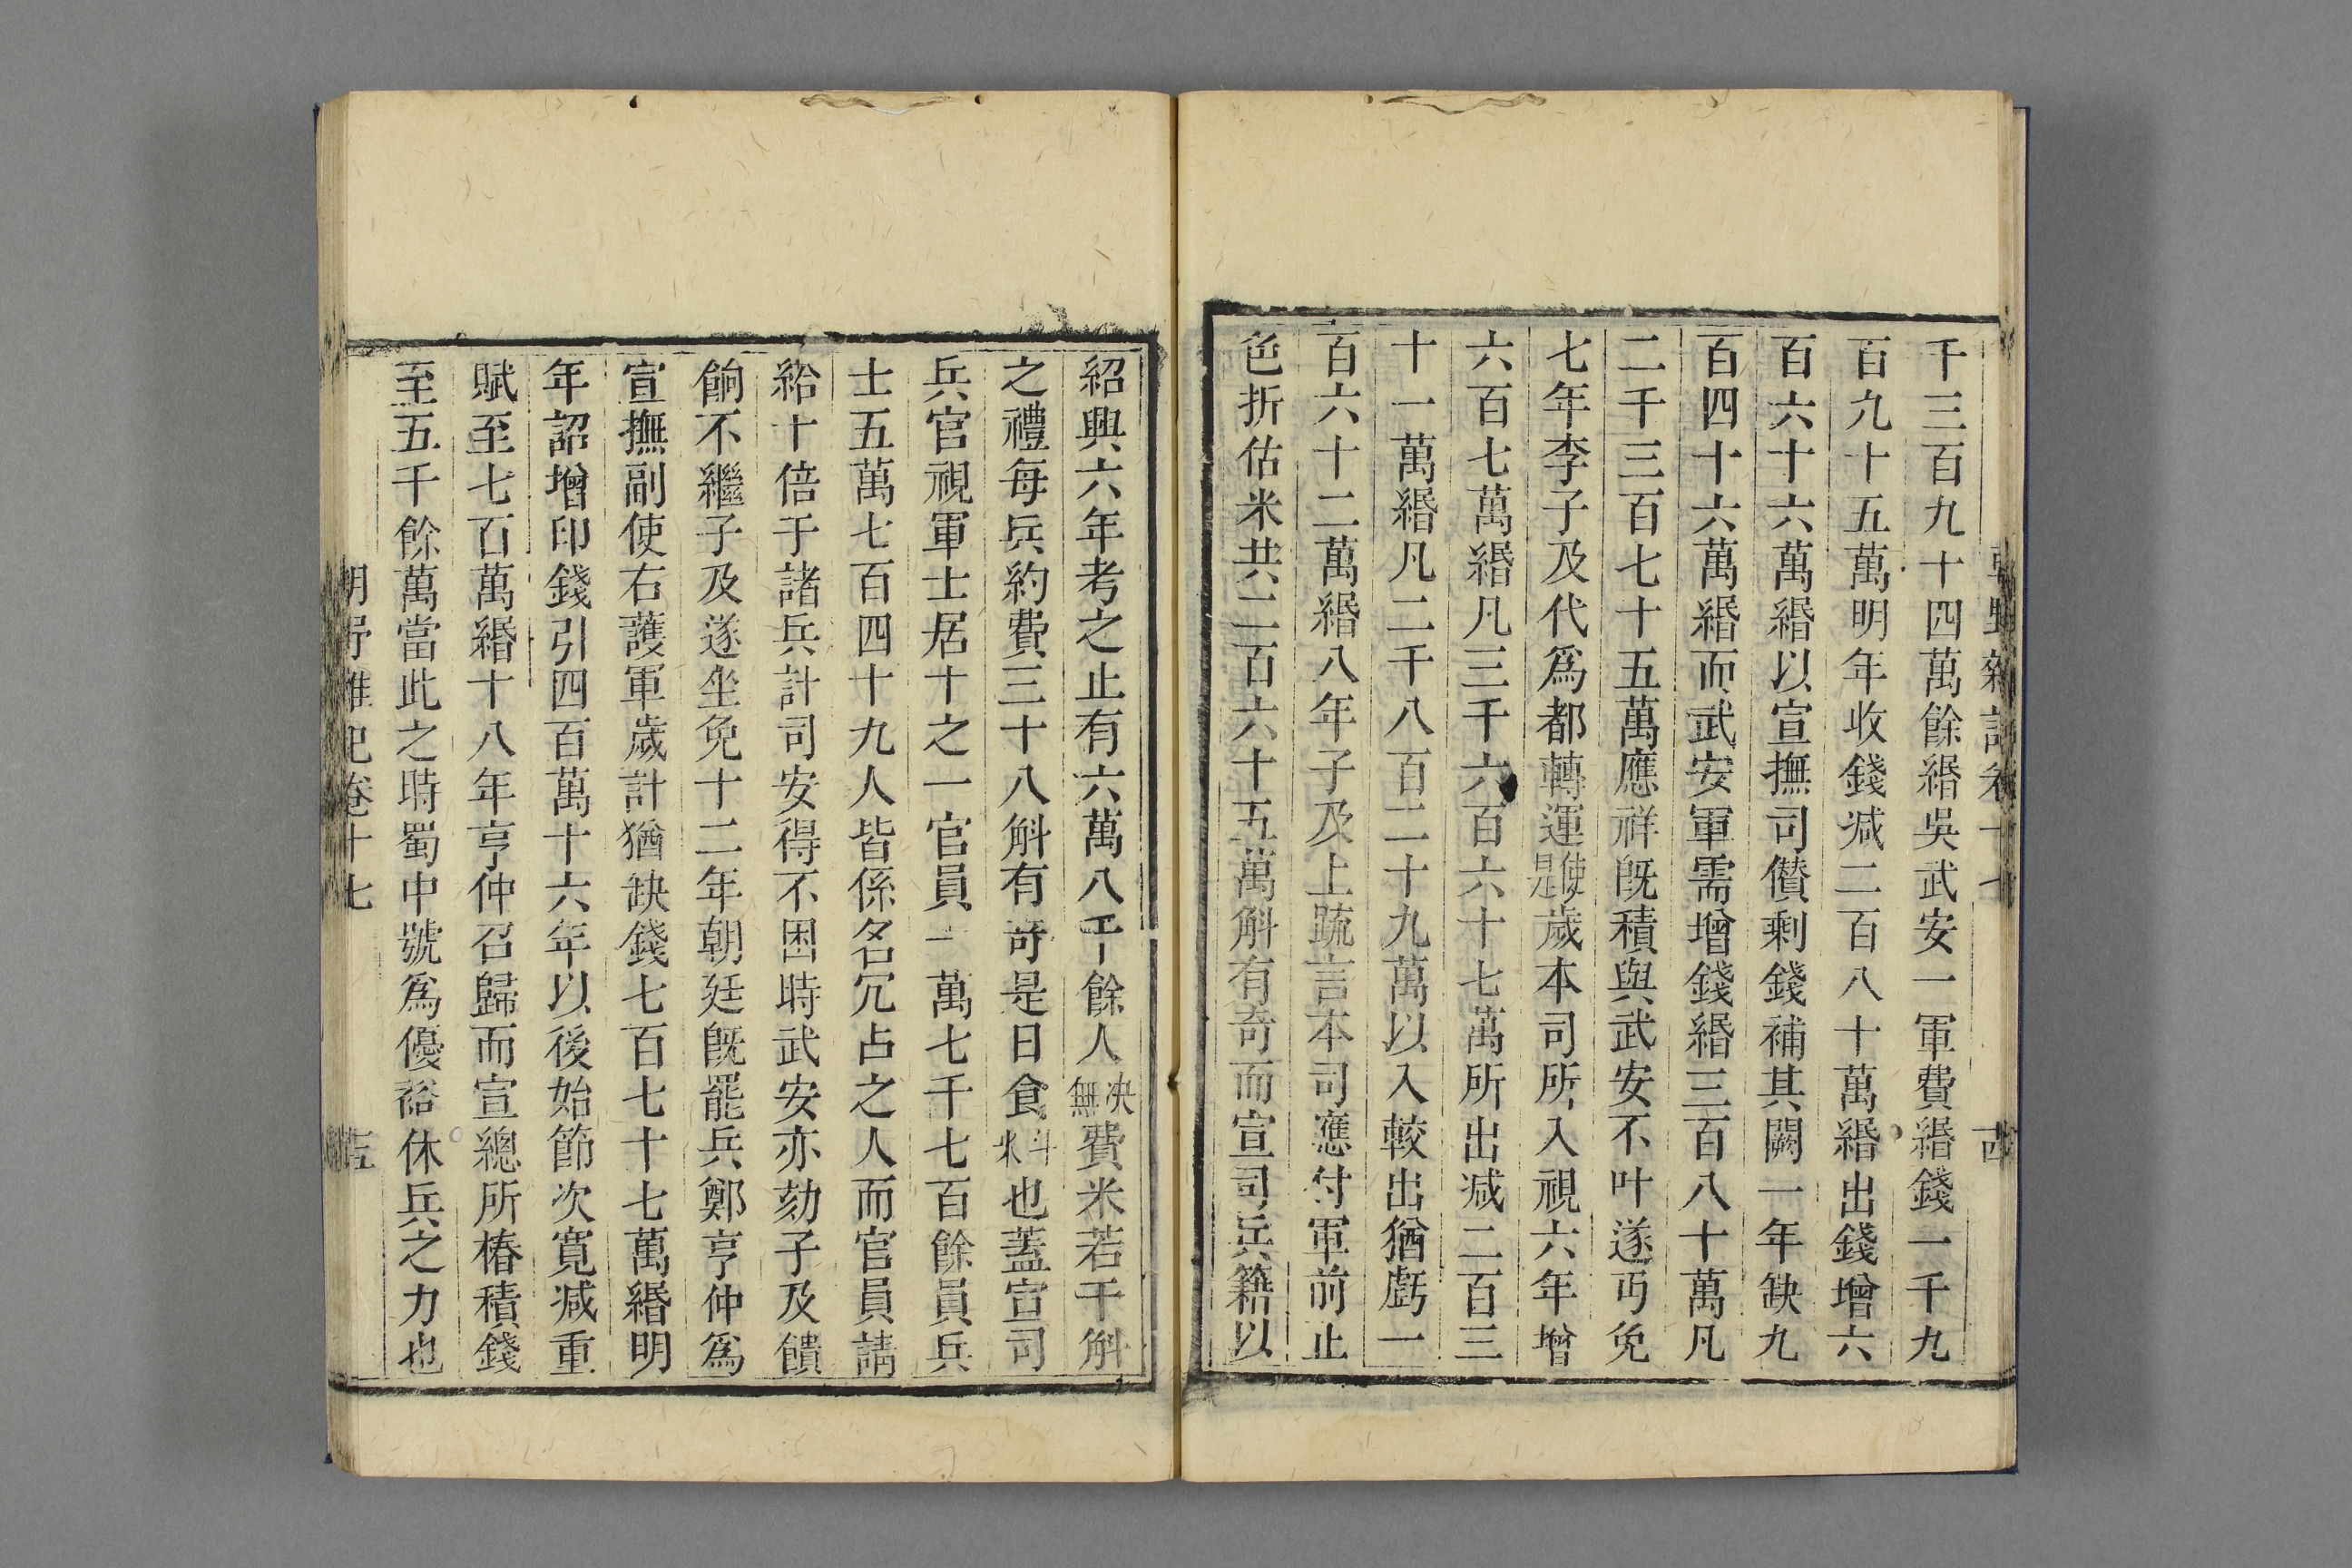 千三百九十四萬餘緡吳武安一軍費緡錢一千九
百九十五萬明年收錢減二百八十萬緡出錢增六
百六十六萬緡以宣撫司儹剩錢補其闕一年缺九
百四十六萬緡而武安軍需增錢緡三百八十萬凡
二千三百七十五萬應祥旣積與武安不叶遂丐免
七年李子及代爲都轉運使是歲本司所入視六年增
六百七萬緡凡三千六百六十七萬所出减二百三
十一萬緡凡二千八百二十九萬以入較出猶虧一
百六十二萬緡八年子及上疏言本司應付軍前止
色折估米共二百六十五萬斛有奇而宣司兵籍以
紹興六年考之止有六萬八千餘人決無費米若干斛
之禮每兵約費三十八斛有奇是日食料也蓋宣司
兵官視軍士居十之一官員一萬七千七百餘員兵
士五萬七百四十九人皆係名冗占之人而官員請
給十倍于諸兵計司安得不困時武安亦劾子及饋
餉不繼子及遂坐免十二年朝廷旣罷兵鄭亨仲爲
宣撫副使右護軍歲計猶缺錢七百七十七萬緡明
年詔增印錢引四百萬十六年以後始節次寬减重
賦至七百萬緡十八年亨仲召歸而宣總所樁積錢
至五千餘萬當此之時蜀中號爲優裕休兵之力也
卷十七